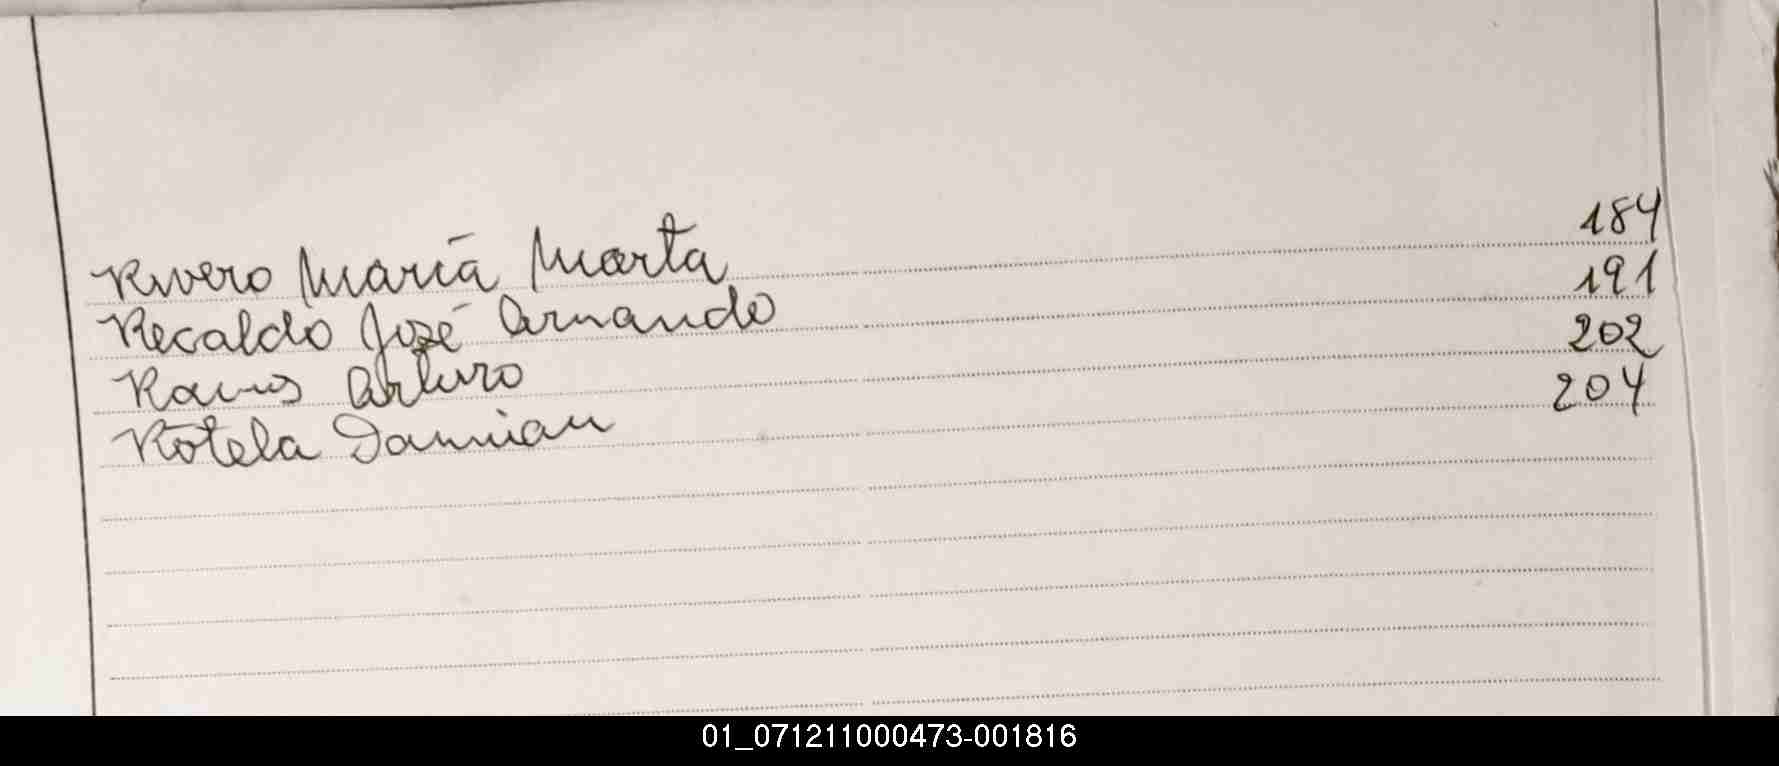 Rivero María Marta 184
Recaldo José Armando 191
Ramos Arturo 202
Rotela Damian 204
01_071211000473-001816